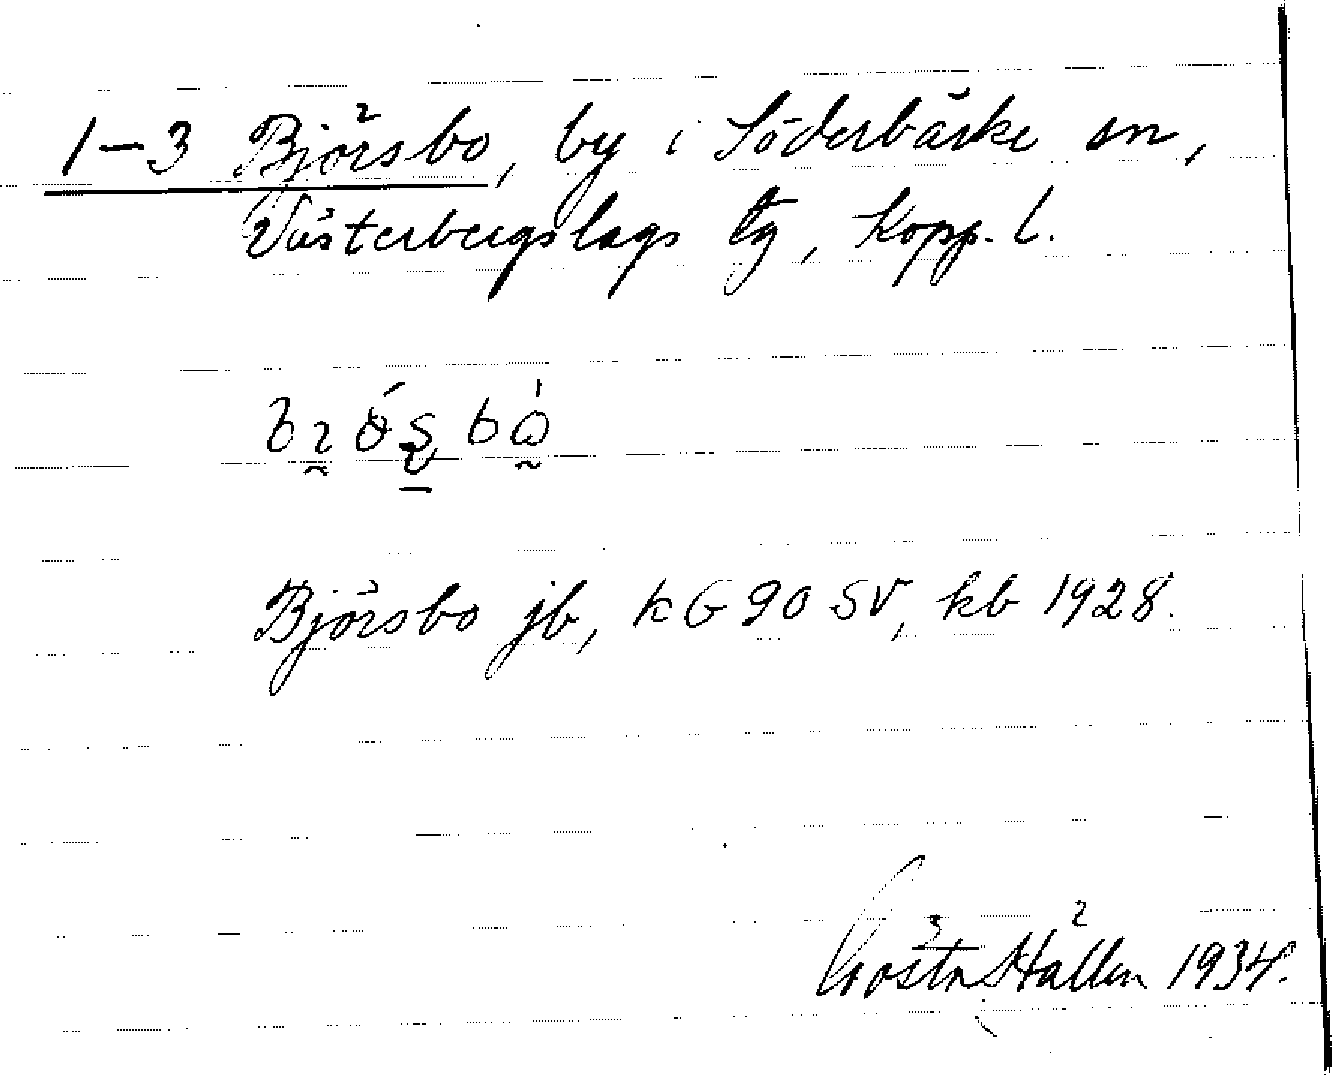 1-3 Björsbo, by i Söderbärke sn,
Västerbergslags tg, Kopp. l.
Björsbo jb, kG 90 SV, kb 1928.
Gösta Hällen 1934.